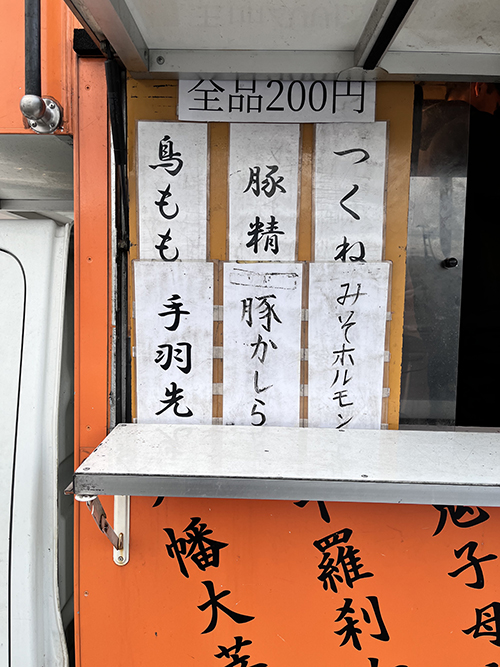 全品200円
つくね
豚精
鳥もも
みそホルモン
豚かしら
手羽先
鬼子母
十羅刹
幡大菩